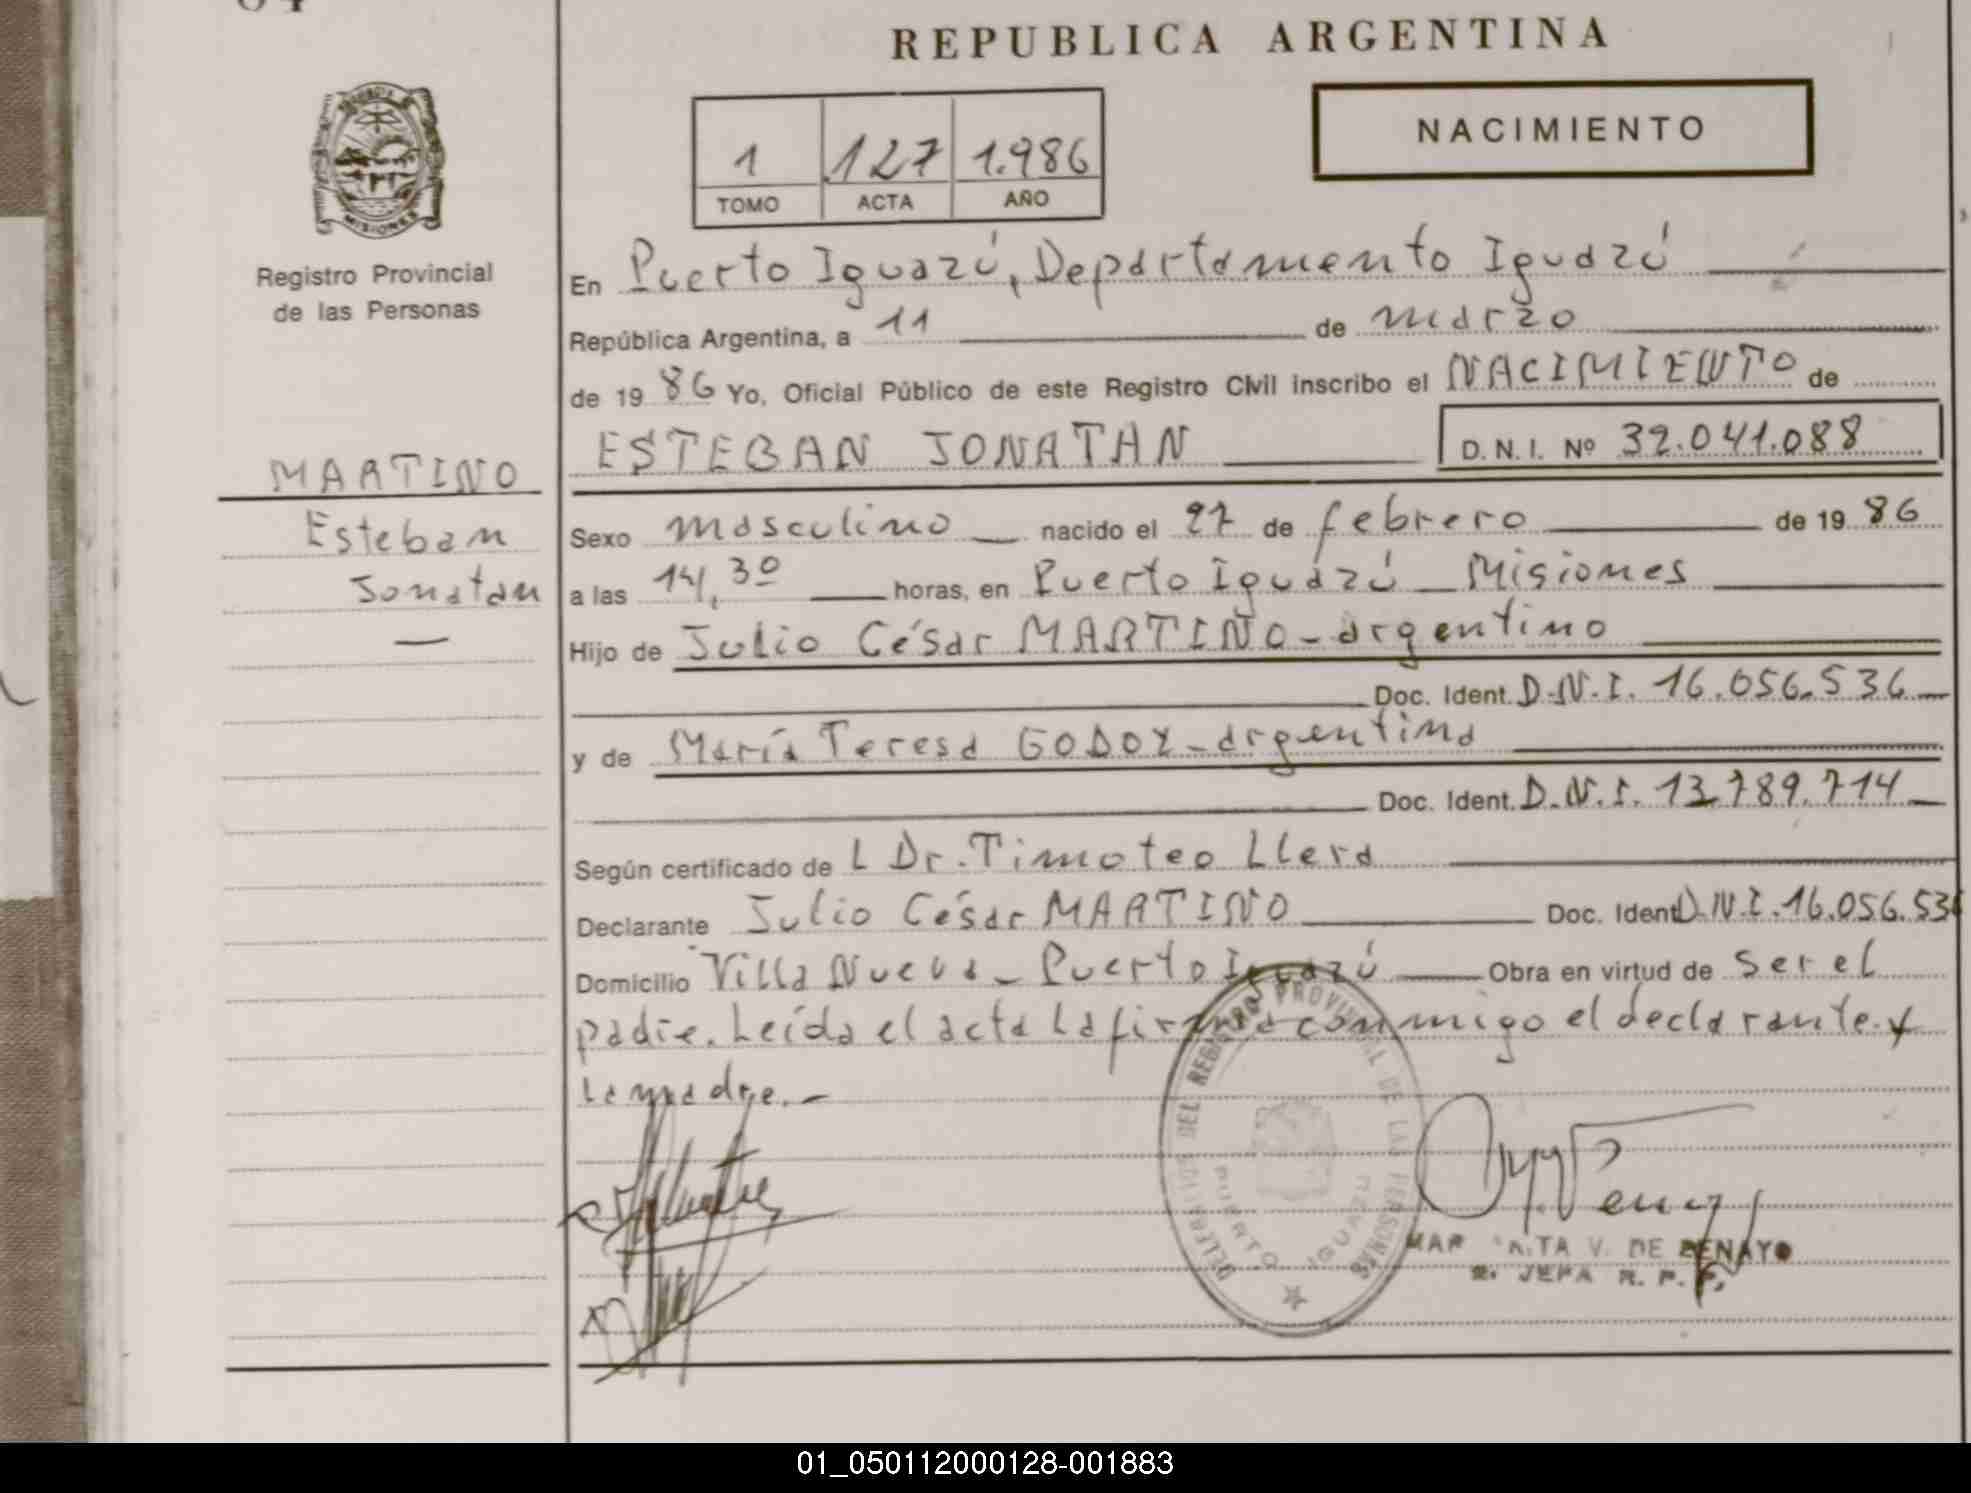 REPUBLICA ARGENTINA
NACIMIENTO
1 127 1.986
TOMO ACTA AÑO
MISIONES
Registro Provincial
de las Personas
MARTINO
Esteban
Jonatan
En Puerto Iguazú, Departamento Iguazú
República Argentina, a 11 de marzo
de 1986 Yo, Oficial Público de este Registro Civil inscribo el NACIMIENTO de
ESTEBAN JONATAN D.N.I. Nº 32.041.088
Sexo masculino nacido el 27 de febrero de 1986
a las 14,30 horas, en Puerto Iguazú - Misiones
Hijo de Julio César MARTINO - argentino
Doc. Ident. D.N.I. 16.056.536
y de María Teresa GODOY - argentina
Doc. Ident. D.N.I. 13.789.714
Según certificado de L Dr. Timoteo Llera
Declarante Julio César MARTINO Doc. Ident. D.N.I. 16.056.536
Domicilio Villa Nueva - Puerto Iguazú Obra en virtud de ser el
padre. Leída el acta la firma conmigo el declarante y
la madre. -
DEL REGISTRO PROVINCIAL DE LAS PERSONAS
PUERTO IGUAZU
V. DE BENAYO
JEFA R. P. P.
01_050112000128-001883